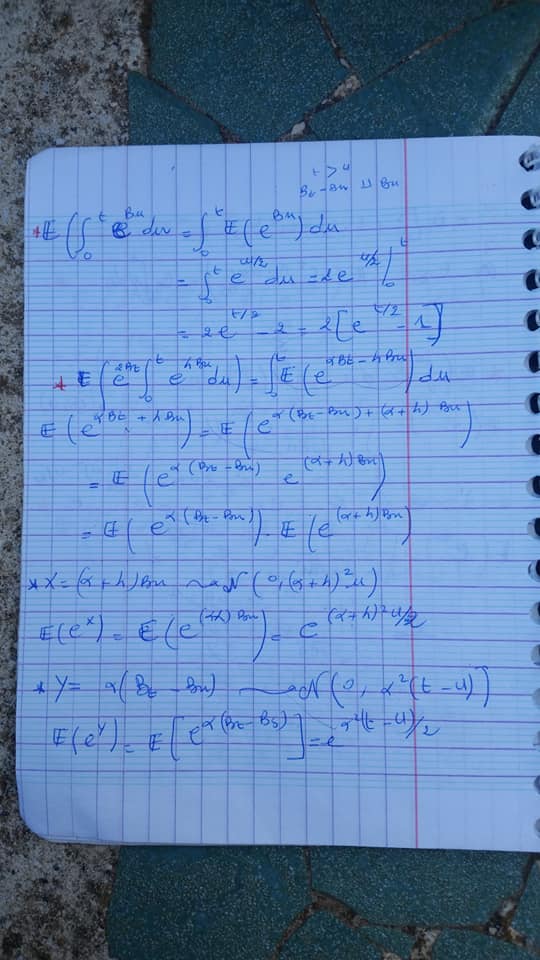 t > u
Bt - Bu ⊥⊥ Bu
* E(∫₀ᵗ e^{Bu} du = ∫₀ᵗ E(e^{Bu}) du
= ∫₀ᵗ e^{u/2} du = 2e^{u/2} |₀ᵗ
= 2e^{t/2} - 2 = 2[e^{t/2} - 1]
* E(e^{αBt} ∫₀ᵗ e^{hBu} du) = ∫₀ᵗ E(e^{αBt - hBu}) du
E(e^{αBt + hBu}) = E(e^{α(Bt-Bu) + (α+h)Bu})
= E(e^{α(Bt-Bu)} e^{(α+h)Bu})
= E(e^{α(Bt-Bu)}) . E(e^{(α+h)Bu})
* X = (α+h)Bu ~ N(0, (α+h)²u)
E(e^X) = E(e^{(α+h)Bu}) = e^{(α+h)²u/2}
* Y = α(Bt - Bu) ~ N(0, α²(t-u))
E(e^Y) = E[e^{α(Bt-Bs)}] = e^{α²(t-u)/2}